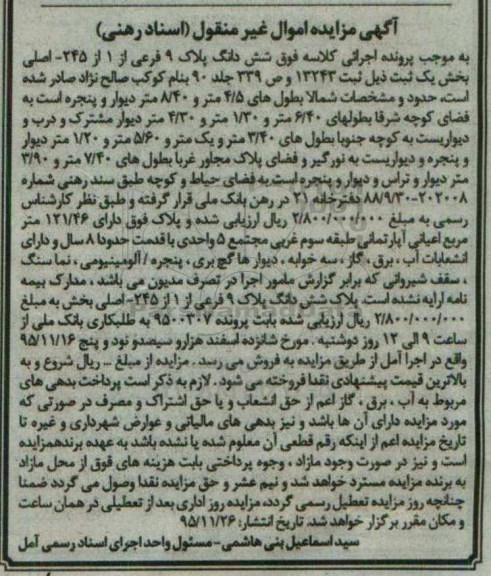 آگهی مزایده اموال غیر منقول (اسناد رهنی)
به موجب پرونده اجرائی کلاسه فوق شش دانگ پلاک ۹ فرعی از ۱ از ۲۴۵- اصلی
بخش یک ثبت ذیل ثبت ۱۳۲۴۳ و ص ۳۳۹ جلد ۹۰ بنام کوکب صالح نژاد صادر شده
است، حدود و مشخصات شمالا بطول های ۴/۵ متر و ۸/۴۰ متر دیوار و پنجره است به
فضای کوچه شرقا بطولهای ۶/۴۰ متر و ۱/۳۰ متر و ۴/۳۰ متر دیوار مشترک و درب و
دیواریست به کوچه جنوبا بطول های ۳/۴۰ متر و یک متر و ۵/۶۰ متر و ۱/۲۰ متر دیوار
و پنجره و دیواریست به نورگیر و فضای پلاک مجاور غربا بطول های ۷/۴۰ متر و ۳/۹۰
متر دیوار و تراس و دیوار و پنجره است به فضای حیاط و کوچه طبق سند رهنی شماره
۲۰۲۰۰۸-۸۸/۹/۳۰ دفترخانه ۲۱ در رهن بانک ملی قرار گرفته و طبق نظر کارشناس
رسمی به مبلغ ۲/۸۰۰/۰۰۰/۰۰۰ ریال ارزیابی شده و پلاک فوق دارای ۱۲۱/۴۶ متر
مربع اعیانی آپارتمانی طبقه سوم غربی مجتمع ۵ واحدی با قدمت حدودا ۸ سال و دارای
انشعابات آب ، برق ، گاز ، سه خوابه ، دیوار ها گچ بری ، پنجره / آلومینیومی ، نما سنگ
، سقف شیروانی که برابر گزارش مامور اجرا در تصرف مدیون می باشد ، مدارک بیمه
نامه ارایه نشده است. پلاک شش دانگ پلاک ۹ فرعی از ۱ از ۲۴۵- اصلی بخش به مبلغ
۲/۸۰۰/۰۰۰/۰۰۰ ریال ارزیابی شده بابت پرونده ۹۵۰۰۳۰۷ به طلبکاری بانک ملی از
ساعت ۹ الی ۱۲ روز دوشنبه . مورخ شانزده اسفند هزارو سیصدو نود و پنج ۹۵/۱۱/۱۶
واقع در اجرا آمل از طریق مزایده به فروش می رسد . مزایده از مبلغ ... ریال شروع و به
بالاترین قیمت پیشنهادی نقدا فروخته می شود . لازم به ذکر است پرداخت بدهی های
مربوط به آب ، برق ، گاز اعم از حق انشعاب و یا حق اشتراک و مصرف در صورتی که
مورد مزایده دارای آن ها باشد و نیز بدهی های مالیاتی و عوارض شهرداری و غیره تا
تاریخ مزایده اعم از اینکه رقم قطعی آن معلوم شده یا نشده باشد به عهده برندهمزایده
است و نیز در صورت وجود مازاد ، وجوه پرداختی بابت هزینه های فوق از محل مازاد
به برنده مزایده مسترد خواهد شد و نیم عشر و حق مزایده نقدا وصول می گردد ضمنا
چنانچه روز مزایده تعطیل رسمی گردد، مزایده روز اداری بعد از تعطیلی در همان ساعت
و مکان مقرر برگزار خواهد شد. تاریخ انتشار: ۹۵/۱۱/۲۶
سید اسماعیل بنی هاشمی - مسئول واحد اجرای اسناد رسمی آمل